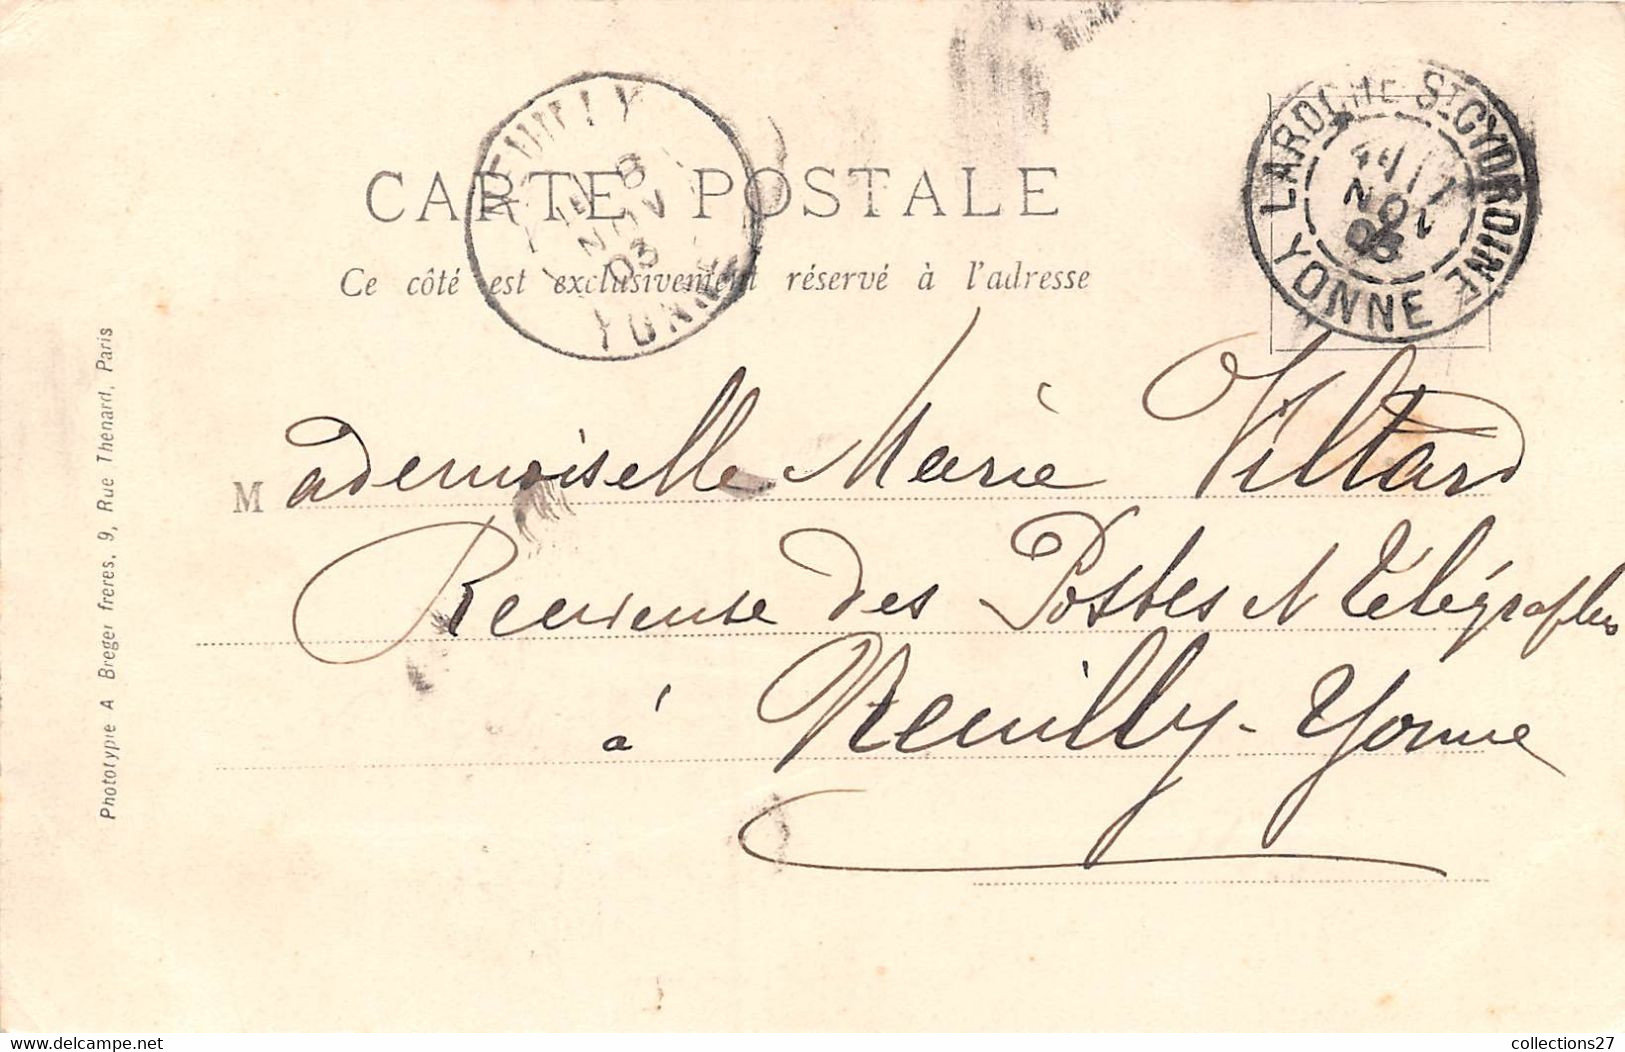 NEUILLY
8
NOV
03
YONNE
LAROCHE ST CYDROINE
NOV
03
YONNE
CARTE POSTALE
Ce côté est exclusivement réservé à l'adresse
Mademoiselle Marie Villard
Receveuse des Postes et Télégraphes
à Neuilly - Yonne
Phototypie A Breger freres, 9, Rue Thenard, Paris
delcampe.net
collections27